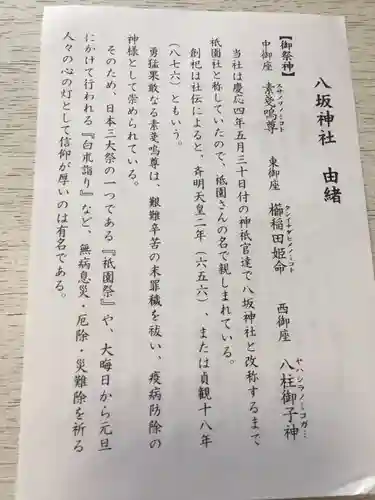 八坂神社 由緒
【御祭神】
中御座 素戔嗚尊 東御座 櫛稲田姫命 西御座 八柱御子神
スサノヲノミコト クシイナダヒメノミコト ヤハシラノミコガ…
当社は慶応四年五月三十日付の神祇官達で八坂神社と改称するまで
祇園社と称していたので、祇園さんの名で親しまれている。
創祀は社伝によると、斉明天皇二年（六五六）、または貞観十八年
（八七六）ともいう。
勇猛果敢なる素戔嗚尊は、艱難辛苦の末罪穢を祓い、疫病防除の
神様として崇められている。
そのため、日本三大祭の一つである『祇園祭』や、大晦日から元旦
にかけて行われる『白朮詣り』など、無病息災・厄除・災難除を祈る
人々の心の灯として信仰が厚いのは有名である。